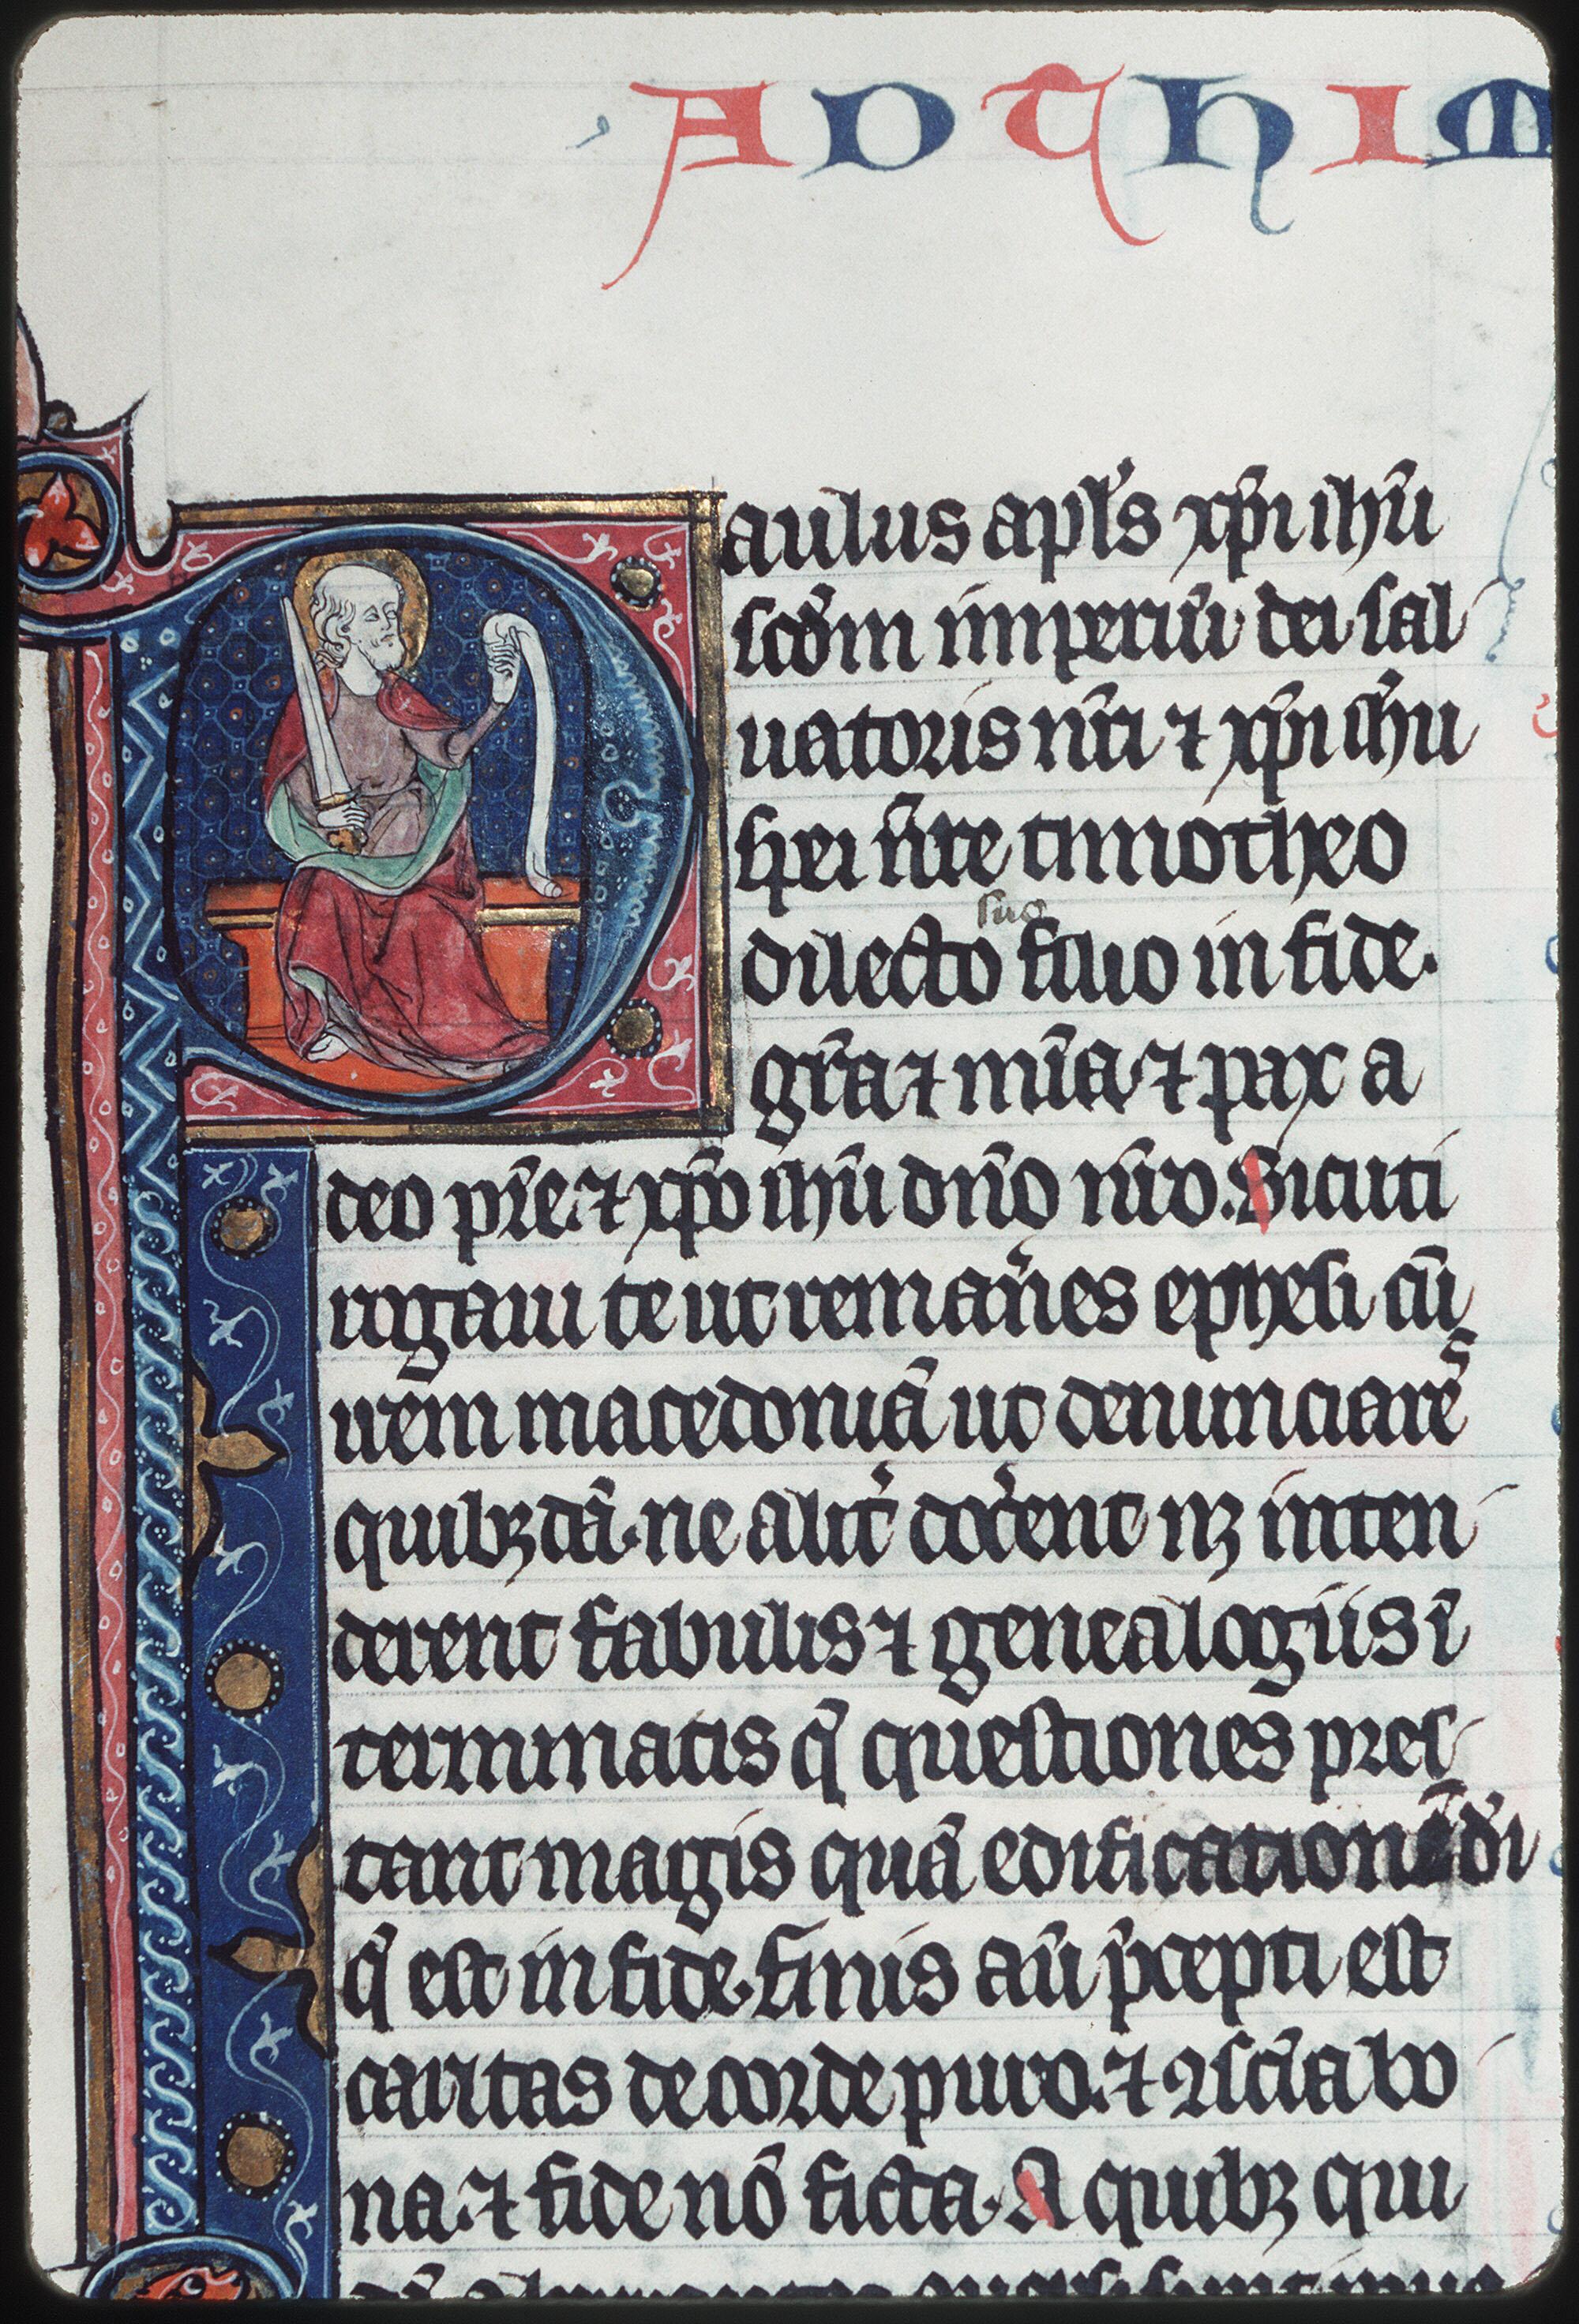 AD THIM
Paulus apl's xp̄i ih̄u
scd̄m imperiū dei sal
uatoris nr̄i ⁊ xp̄i ih̄u
spei nr̄e timotheo
suo
dilecto filio in fide.
gr̄a ⁊ mīa ⁊ pax a
deo pr̄e. ⁊ xp̄o ih̄u dn̄o nr̄o. Sicuti
rogaui te ut reman̄es ephesi cū
irem macedoniā ut denunciarēs
quibꝫdā. ne alit̄ doc̄ent nꝫ inten
derent fabulis ⁊ genealogiis ī
terminatis q̄ questiones pres
tant magis quā edificationē d̄i
q̄ est in fide. Finis aū p̄cepti est
caritas de corde puro. ⁊ ꝯsciā bo
na. ⁊ fide nō ficta. A quibꝫ qui